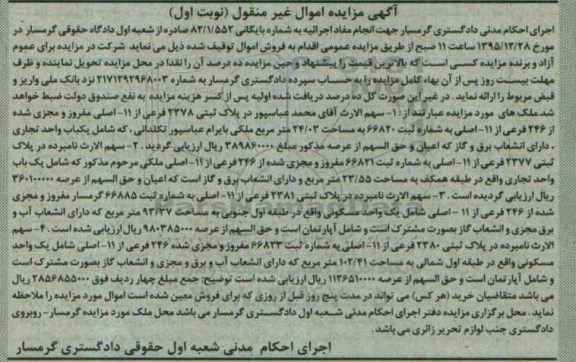 آگهی مزایده اموال غیر منقول (نوبت اول)
اجرای احکام مدنی دادگستری گرمسار جهت انجام مفاد اجرائیه به شماره بایگانی ۸۲/۱/۵۵۲ صادره از شعبه اول دادگاه حقوقی گرمسار در
مورخ ۱۳۹۵/۱۲/۲۸ ساعت ۱۱ صبح از طریق مزایده عمومی اقدام به فروش اموال توقیف شده ذیل می نماید شرکت در مزایده برای عموم
آزاد و برنده مزایده کسی است که بالاترین قیمت را پیشنهاد وحین مزایده ده درصد آن را نقدا در محل مزایده تحویل نماینده و ظرف
مهلت بیست روز پس از آن بهاء کامل مزایده را به حساب سپرده دادگستری گرمسار به شماره ۲۱۷۱۲۹۲۹۶۸۰۰۳ نزد بانک ملی واریز و
قبض مربوط را ارائه نماید . در غیر این صورت کل ده درصد دریافت شده اولیه پس از کسر هزینه مزایده به نفع صندوق دولت ضبط خواهد
شد.ملک های مورد مزایده عبارتند از :۱- سهم الارث آقای محمد عباسپور در پلاک ثبتی ۲۳۷۸ فرعی از ۱۱- اصلی مفروز و مجزی شده
از ۲۴۶ فرعی از ۱۱-اصلی به شماره ثبت ۶۶۸۲۰ به مساحت ۲۴/۰۳ متر مربع ملکی بایرام عباسپور تکلدانی ، که شامل یکباب واحد تجاری
، دارای انشعاب برق و گاز که اعیان و حق السهم از عرصه مذکور مبلغ ۳۸۹۸۶۰۰۰۰ ریال ارزیابی گردید . ۲- سهم الارث نامبرده در پلاک
ثبتی ۲۳۷۷ فرعی از ۱۱- اصلی به شماره ثبت ۶۶۸۲۱ مفروز و مجزی شده از ۲۴۶ فرعی از ۱۱- اصلی ملکی مرحوم مذکور که شامل یک باب
واحد تجاری واقع در طبقه همکف به مساحت ۲۳/۵۵ متر مربع و دارای انشعاب برق و گاز است که اعیان و حق السهم از عرصه ۳۶۰۱۰۰۰۰۰
ریال ارزیابی گردیده است . ۳- سهم الارث نامبرده در پلاک ثبتی ۲۳۸۱ فرعی از ۱۱- اصلی به شماره ثبت ۶۶۸۸۵ گرمسار مفروز و مجزی
شده از ۲۴۶ فرعی از ۱۱ - اصلی شامل یک واحد مسکونی واقع در طبقه اول جنوبی به مساحت ۹۳/۳۷ متر مربع که دارای انشعاب آب و
برق مجزی و انشعاب گاز بصورت مشترک است و شامل آپارتمان است و حق السهم از عرصه ۹۸۰۳۸۵۰۰۰ ریال ارزیابی شده است . ۴- سهم
الارث نامبرده در پلاک ثبتی ۲۳۸۰ فرعی از ۱۱- اصلی به شماره ثبت ۶۶۸۲۳ مفروز و مجزی شده ۲۴۶ فرعی از ۱۱- اصلی شامل یک واحد
مسکونی واقع در طبقه اول شمالی به مساحت ۱۰۲/۴۱ متر مربع که دارای انشعاب آب و برق و مجزی و انشعاب گاز بصورت مشترک است
و شامل آپارتمان است و حق السهم از عرصه ۱۱۳۶۵۱۰۰۰۰ ریال ارزیابی شده است توضیح: جمع مبلغ چهار ردیف فوق ۲۸۵۶۸۵۵۰۰۰ ریال
می باشد متقاضیان خرید (هر کس) می تواند در مدت پنج روز قبل از روزی که برای فروش معین شده است اموال مورد مزایده را ملاحظه
نماید . محل برگزاری مزایده دفتر اجرای احکام مدنی شعبه اول دادگستری گرمسار می باشد محل ملک مورد مزایده گرمسار- روبروی
دادگستری جنب لوازم تحریر زائری می باشد .
اجرای احکام مدنی شعبه اول حقوقی دادگستری گرمسار